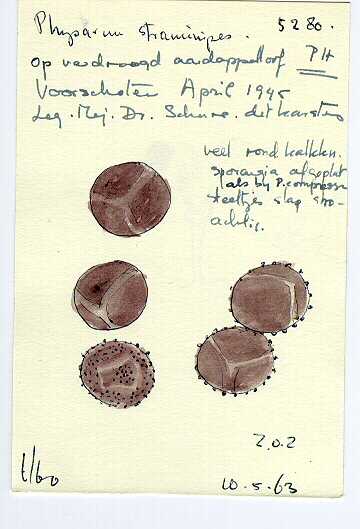 Physarum straminipes. 5280.
op verdroogd aardappelloof PH
Voorschoten April 1945
Leg. Mej. Dr. Schure. det Karsten
veel rond kalkklen.
sporangia afgeplat
als bij P. compressum
steeltjes slap stro-
achtig.
202
t/60
10.5.63